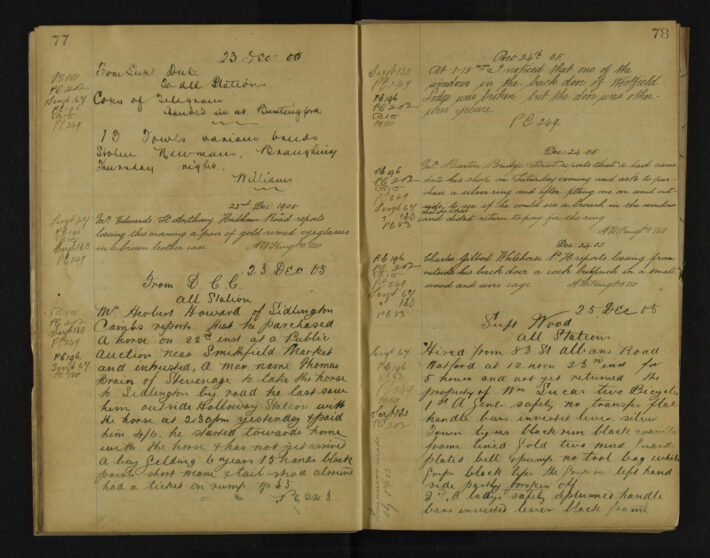 77
23 Dec 05
From Supt Duke
To all Stations
Copy of Telegram
handed in at Buntingford
13 Fowls various breeds
Stolen Newmans, Braughing
Thursday night.
Williams
23rd Dec 1905
Mr Edwards St Anthony Hadham Road reports
losing this morning a pair of gold rimed eyeglasses
in a brown leather case
PC 180
PC 202
Sergt 64
PC 15
PC 249
23 Dec 05
From D. C. C.
All Station
Mr Herbert Howard of Lidlington
Cambs reports that he purchased
a horse on 22nd inst at a Public
Auction near Smithfield Market
and intrusted, a man name Thomas
Brain of Stevenage to take the horse
to Lidlington by road he last saw
them outside Holloway Station with
the horse at 2.30 pm yesterday & paid
him 4/6. he started towards home
with the horse & has not yet arrived
a bay Gelding 6 years 15 hands black
points short mane & tail shod all round
had a ticket on rump No 33
PC 223
78
Dec 24th 05
At 1-15 am I noticed that one of the
windows in the back door of Westfield
Lodge was broken but the door was other-
wise secure
PC 249.
Dec: 24-05
Mr Burton Bridge Street reports that a lad came
into his shop in Saturday evening and ask to pur-
chase a silver ring and after putting one on went out
side, to see if he could see a brooch in the window
and didnt return to pay for the ring
Dec: 24-05
Charles Gilbert Whitehorse P.H reports losing from
outside his back door a cock bulfinch in a small
wood and wire cage
25 Dec 05
Supt Wood
All Stations
Hired from 83 St Albans Road
Watford at 12 noon 23rd inst for
5 hours and not yet returned the
property of Wm Lucas two Bicycles
1st A Gent. safety no transfer flat
handle bars invested lever silver
Town tyres black rim black
frame lined Gold two mud Guard
plated bell & pump no tool bag white
Grips black tips the Grip on left hand
side partly broken off
2nd A ladys safety upturned handle
bars invested lever black frame